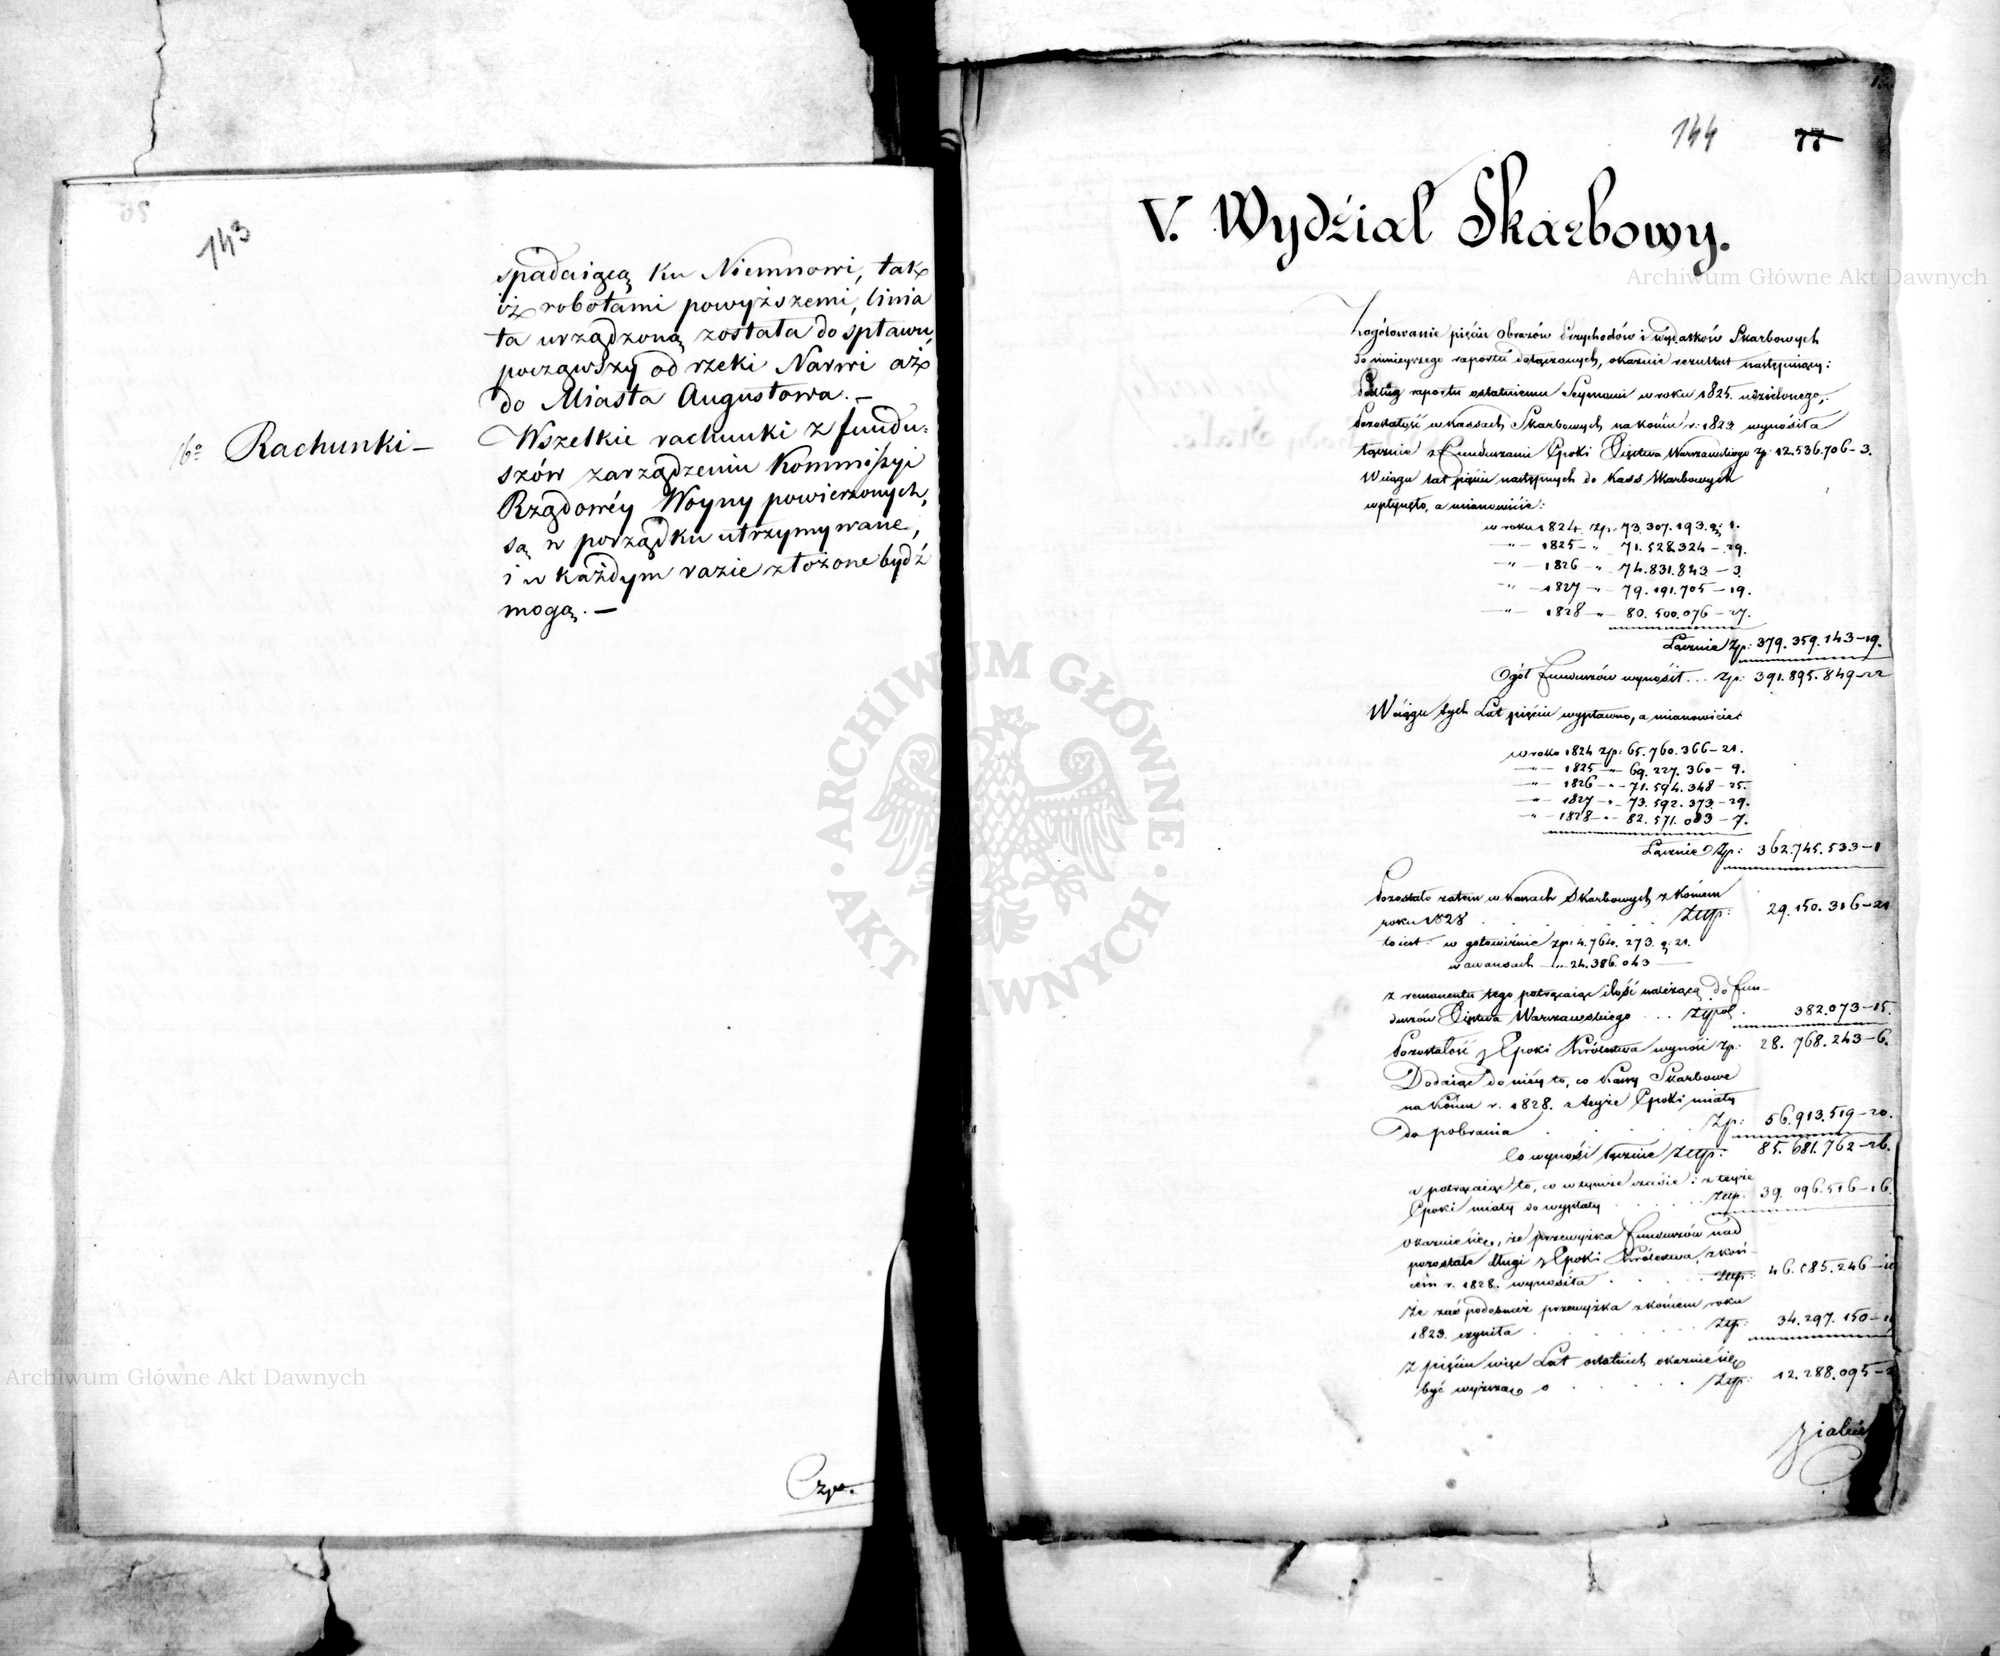 143
spadaiącą ku Niemnowi, tak
iż robotami powyższemi, linia
ta urządzoną została do spławu,
począwszy od rzeki Narwi aż
do Miasta Augustowa. —
16o Rachunki —
Wszelkie rachunki z fundu-
szów zarządzeniu Kommissyi
Rządowéy Woyny powierzonych,
są w porządku utrzymywane,
i w każdym razie złożone bydź
mogą. —
144 77
V. Wydział Skarbowy.
Zogółowanie pięciu Obrazów Przychodów i wydatków Skarbowych
do ninieyszego raportu dołączonych, okazuie rezultat następuiący:
Podług raportu ostatniemu Seymowi w roku 1825. udzielonego,
Pozostałość w kassach Skarbowych na końcu r: 1823 wynosiła
łącznie z Funduszami Epoki Xięstwa Warszawskiego zp: 12.536.706-3.
W ciągu lat pięciu następnych do Kass Skarbowych
wpłynęło, a mianowicie:
w roku 1824 zp: 73.307.193. g: 1.
—„— 1825 —„ 71.528.324 — 29.
—„— 1826 —„ 74.831.843 — 3.
—„— 1827 —„ 79.191.705 — 19.
—„— 1828 —„ 80.500.076 — 27.
Łącznie Zp: 379.359.143-19.
Ogół Funduszów wynosił... Zp: 391.895.849-22
W ciągu tych Lat pięciu wypłacono, a mianowicie:
w roku 1824 zp: 65.760.366-21.
—„— 1825 —„ 69.227.360 — 9.
—„— 1826 —„ 71.594.348 — 25.
—„— 1827 —„ 73.592.373 — 29.
—„— 1828 —„ 82.571.083 — 7.
Łącznie Zp: 362.745.533-1
Pozostało zatem w kassach Skarbowych z końcem
roku 1828 . . . Złtp: 29.150.316-21
to iest: w gotowiźnie zp: 4.764.273. g: 21.
w awansach —„ 24.386.043 —
z remanentu tego potrącaiąc ilość należącą do fun-
duszów Xięstwa Warszawskiego ... złpol. 382.073-15.
Pozostałość z Epoki Królestwa wynosi zp: 28.768.243-6.
Dodaiąc do niéy to, co Kassy Skarbowe
na końcu r. 1828. z teyże Epoki miały
do pobrania . . . Zp: 56.913.519-20.
Co wynosi łącznie Złtp: 85.681.762-26.
a potrącaiąc to, co w tymże czasie z teyże
Epoki miały do wypłaty . . . Złtp: 39.096.516-16.
okazuie się, że przewyżka Funduszów nad
pozostałe długi z Epoki Królestwa, z koń-
cem r. 1828. wynosiła . . . Złtp: 46.585.246-10
że zaś podobnaż przewyżka z końcem roku
1823. czyniła . . . Złtp: 34.297.150-
z pięciu więc Lat ostatnich okazuie się
być wyższą o . . . Złtp: 12.288.095-
Archiwum Główne Akt Dawnych
Archiwum Główne Akt Dawnych
ARCHIWUM GŁÓWNE AKT DAWNYCH